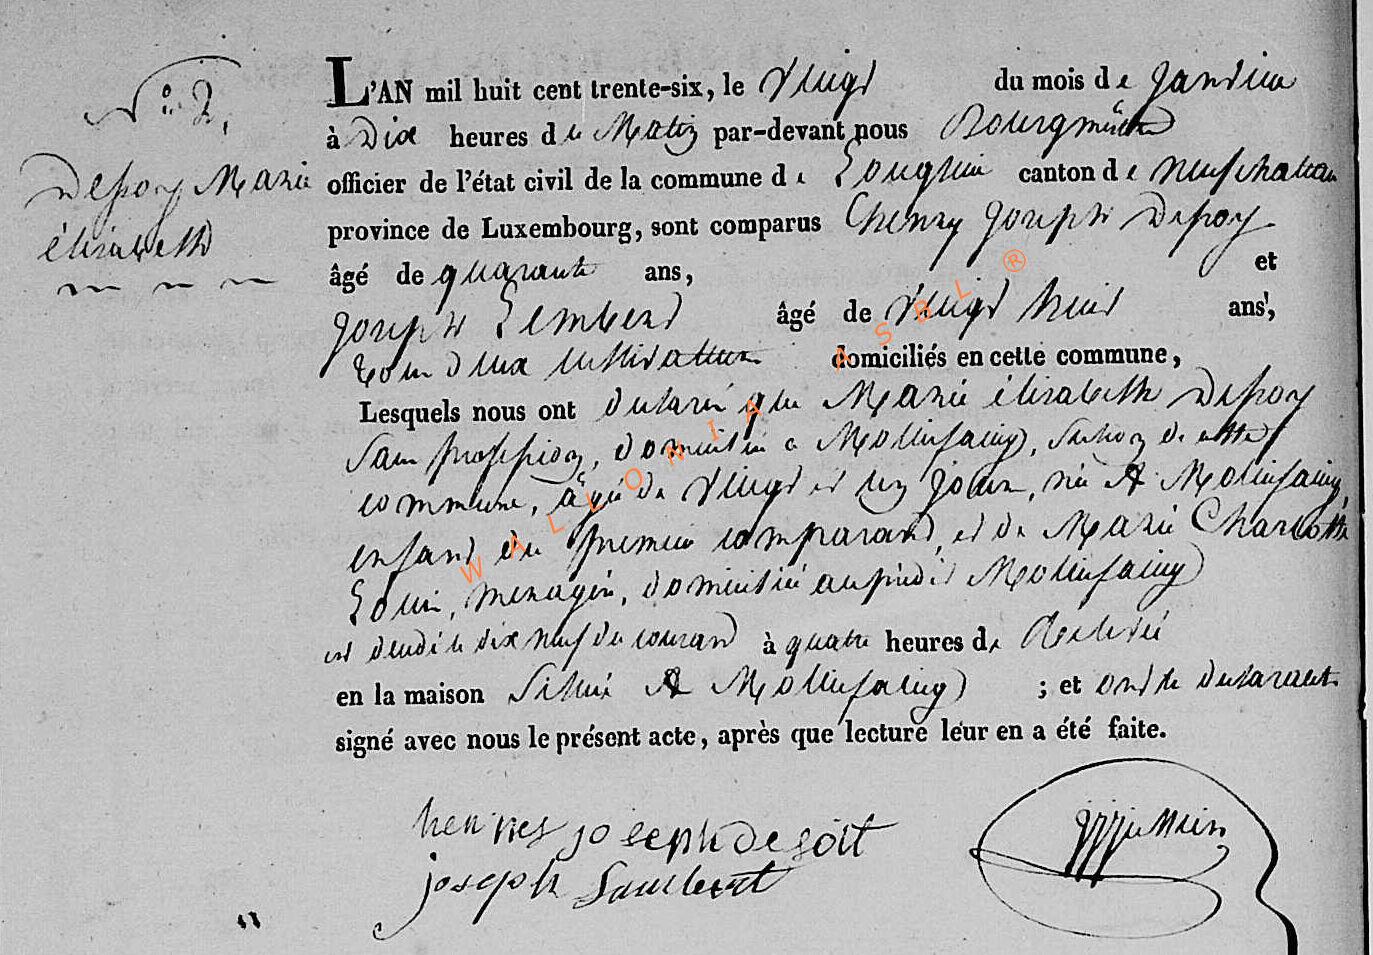 N° 2,
Desoy Marie
élisabeth
L'AN mil huit cent trente-six, le Vingt du mois de Janvier
à Dix heures de Matin par-devant nous Bourgmestre
officier de l'état civil de la commune de Longlier canton de neufchateau
province de Luxembourg, sont comparus Chenry Joseph Desoy
âgé de quarante ans, et
Joseph Lembert âgé de Vingt huit ans,
tous deux cultivateurs domiciliés en cette commune,
Lesquels nous ont declaré que Marie élisabeth Desoy
sans profession, domiciliée a Molinfaing, section de cette
commune, âgée de Vingt et un jours, née A Molinfaing,
enfant du premier comparant, et de Marie Charlotte
Louis, menagère, domiciliée au prédit Molinfaing
est décédé le dix neuf du courant à quatre heures de Relevée
en la maison Située A Molinfaing ; et ont les declarants
signé avec nous le présent acte, après que lecture leur en a été faite.
henries joseph desoit
joseph Lambert
WALLONIA ASBL ®